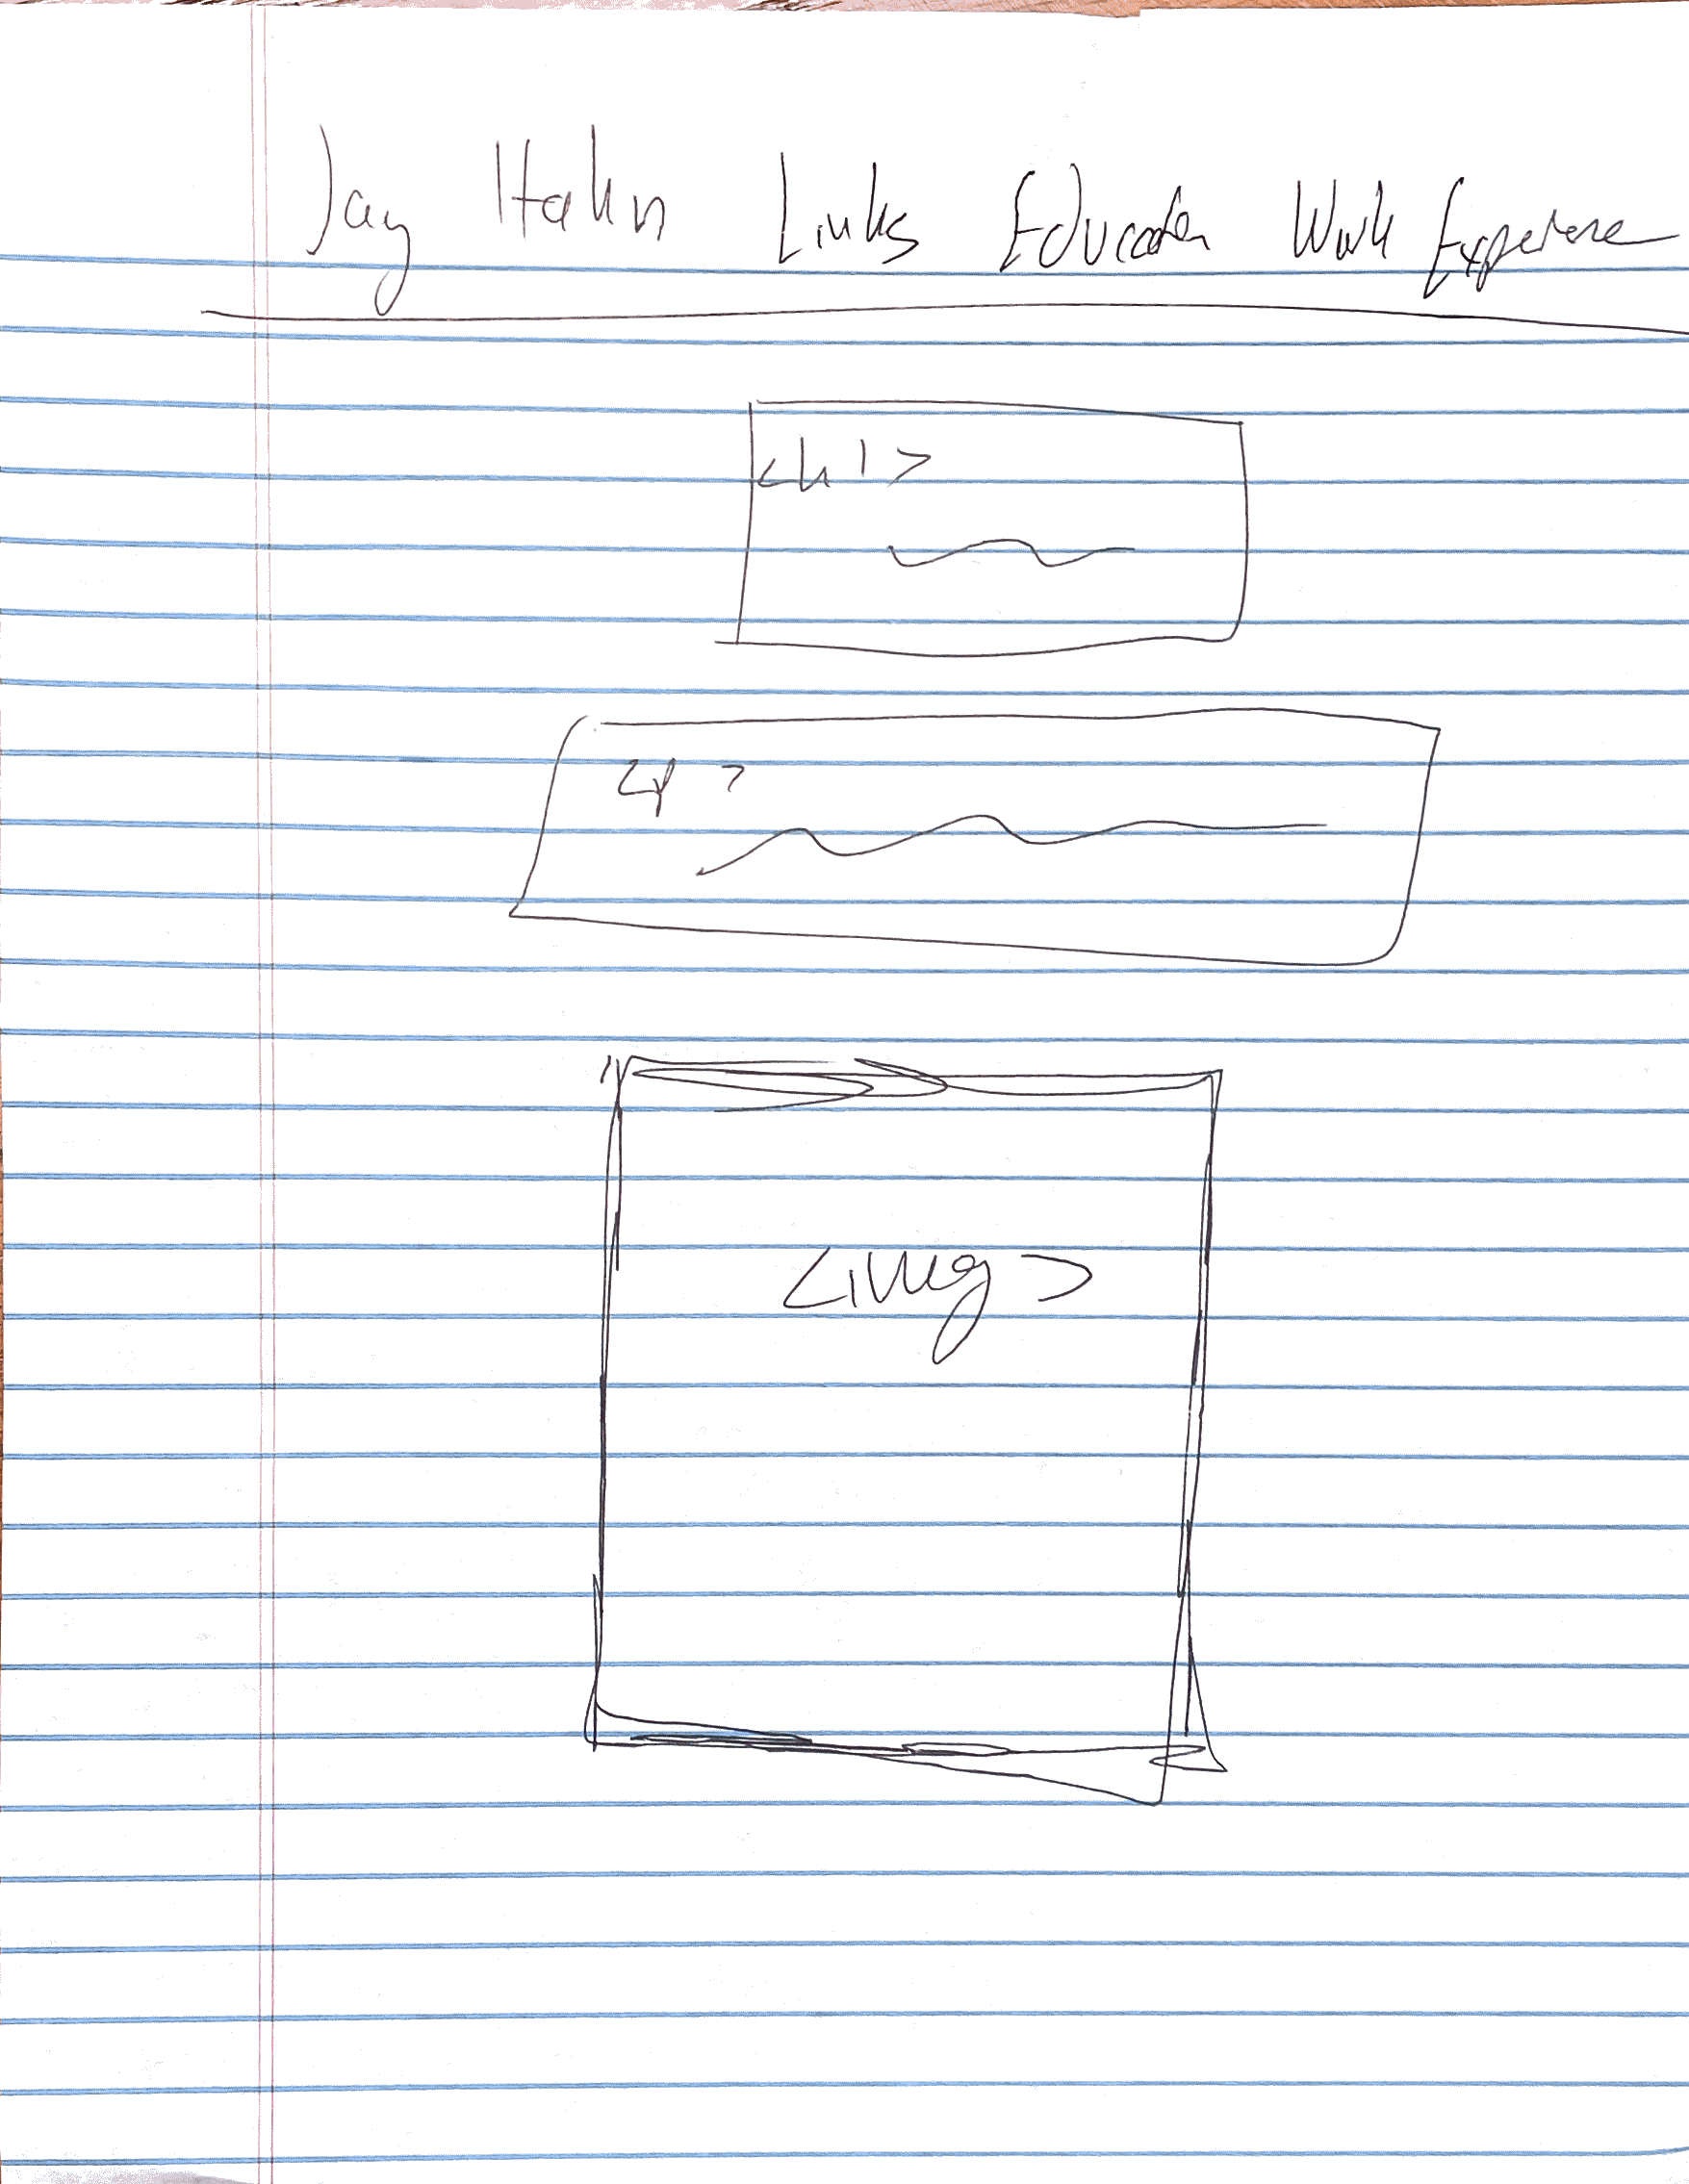 Jay Hahn Links Education Work Experience
<h1>
<p>
<img>